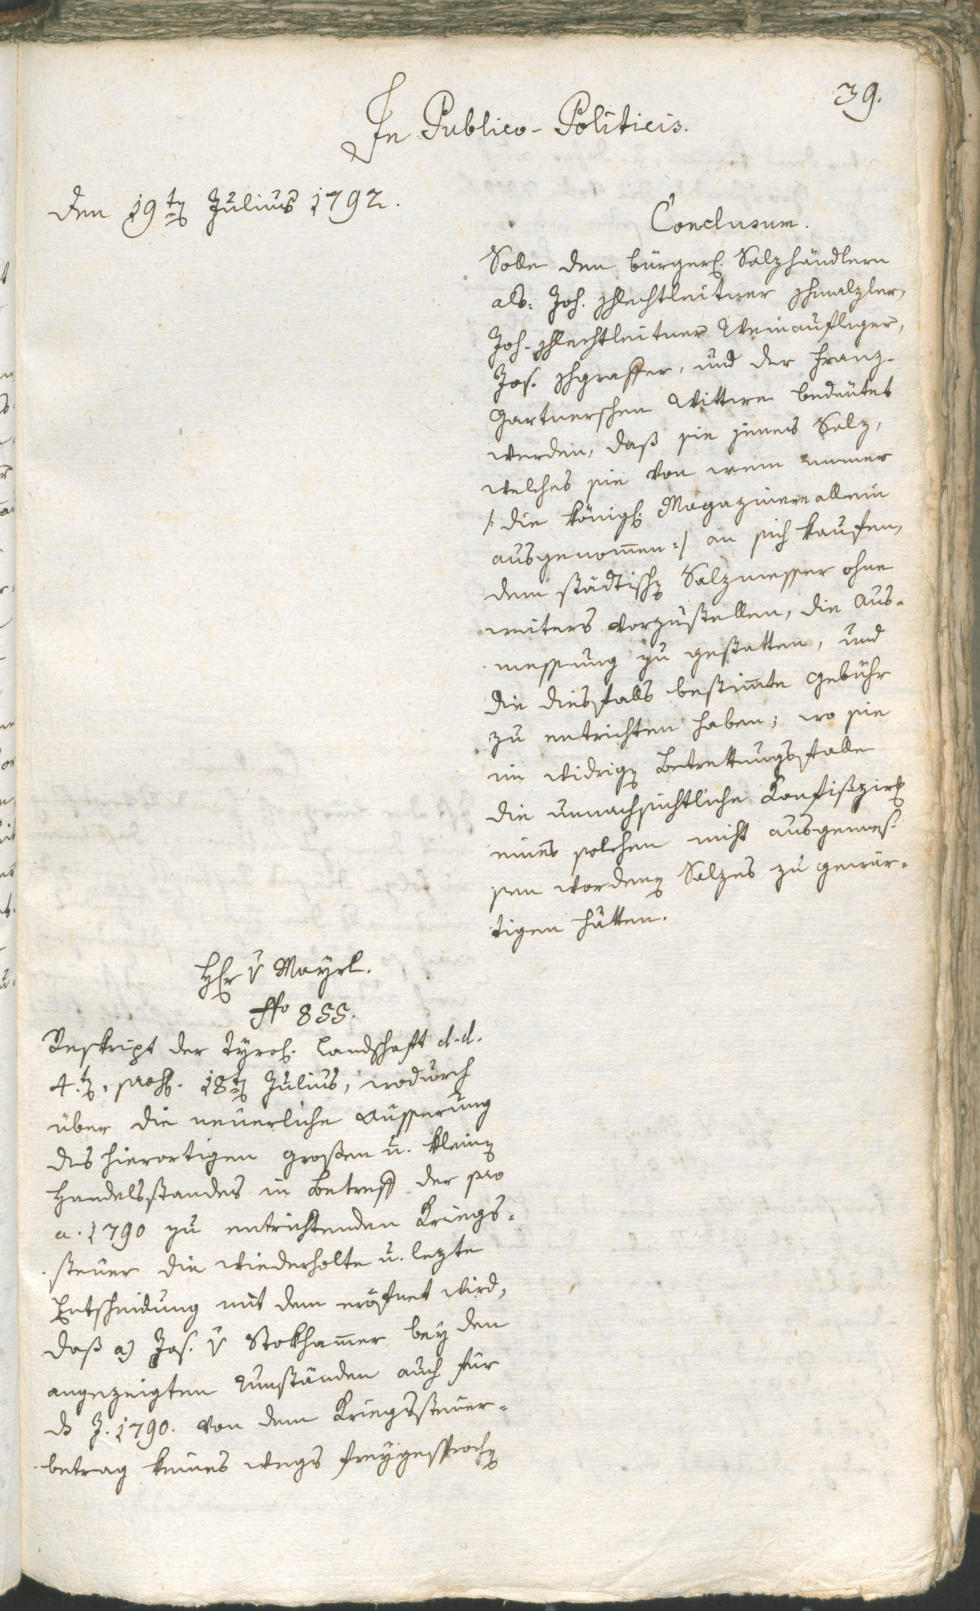 39.
In Publico-Politicis.
den 19ten Julius 1792.
Conclusum.
Solle den bürgerl. Salzhändlern
als: Joh. Schlechtleitner Schmalzler,
Joh. Schlechtleitner Weinaufleger,
Jos. Schgraffer, und der Franz-
Gartnerschen Wittwe bedeutet
werden, daß sie jenes Salz,
welches sie von wem immer
/: die königl. Magazinere allein
ausgenommen :/ an sich kaufen,
dem städtischen Salzmesser ohne
weiters vorzustellen, die Aus-
messung zu gestatten, und
die diesfalls bestimmte Gebühr
zu entrichten haben; wo sie
im widrigen Betrettungsfalle
die unnachsichtliche Konfiszirung
eines solchen nicht ausgemes-
sen wordenen Salzes zu gewär-
tigen hätten.
Hr v Mayrl.
No 855.
Reskript der Tyrol. Landschaft d.d.
4.ten, præs. 18ten Julius, wodurch
über die neuerliche Äusserung
des hierortigen großen u. kleinen
Handelsstandes in Betreff der pro
a. 1790 zu entrichtenden Kriegs-
steuer die wiederholte u. lezte
Entscheidung mit dem eröfnet wird,
daß a) Jos. v Stokhammer bey den
angezeigten Umständen auch für
ds J. 1790. von dem Kriegssteuer-
betrag keines wegs freygesprochen